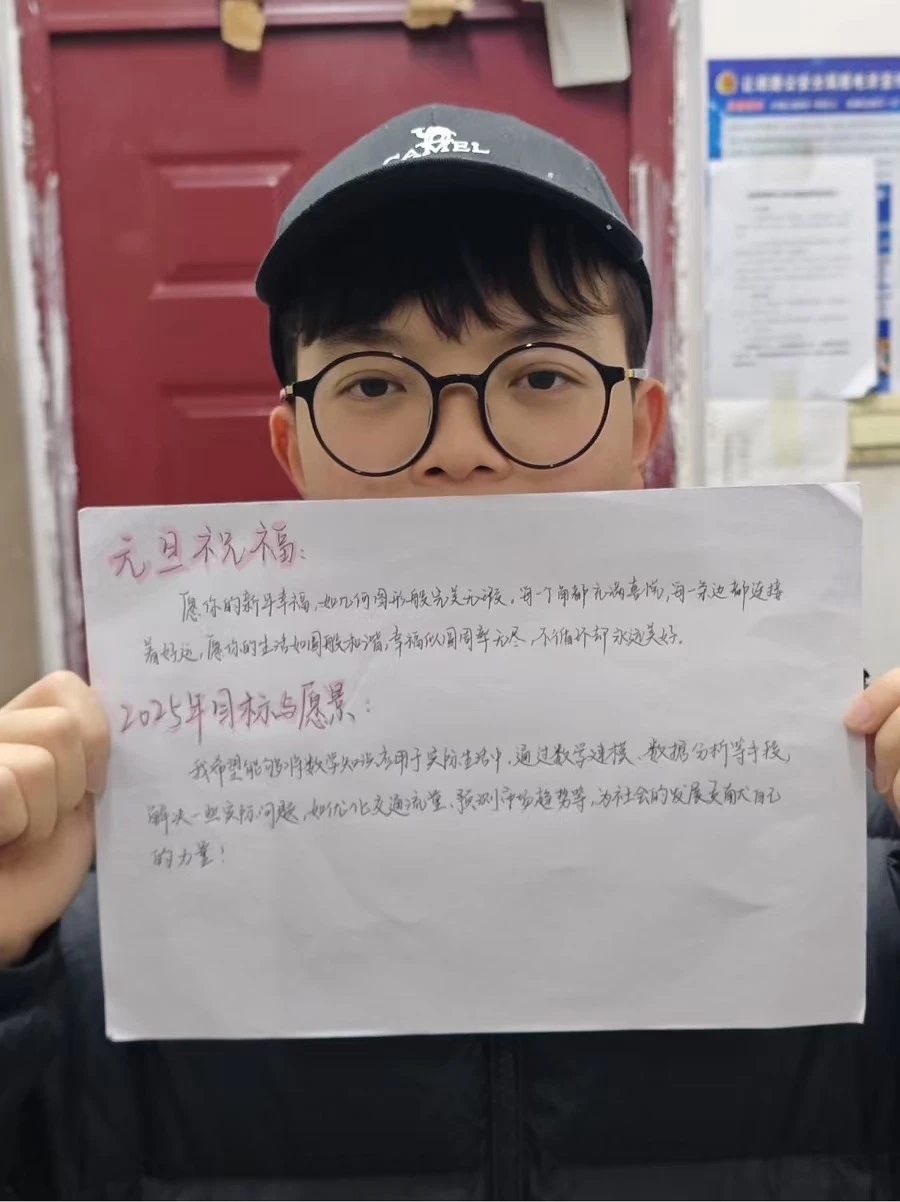 CAMEL
元旦祝福:
愿你的新年幸福,如几何图形般完美无瑕。每一个角都充满喜悦,每一条边都连接
着好运,愿你的生活如圆般和谐,幸福似圆周率无尽,不循环却永远美好。
2025年目标与愿景:
我希望能够将数学知识应用于实际生活中,通过数学建模、数据分析等手段,
解决一些实际问题,如优化交通流量、预测市场趋势等,为社会的发展贡献自己
的力量!